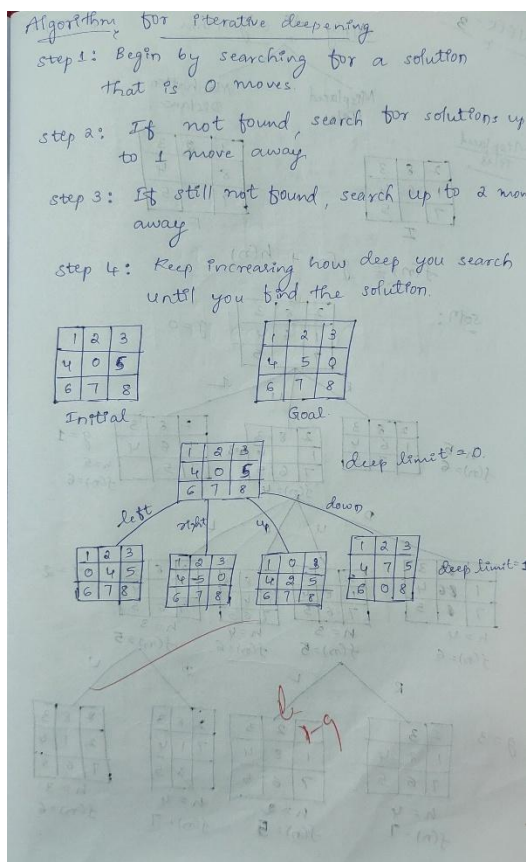 Algorithm for iterative deepening
step 1: Begin by searching for a solution
that is 0 moves.
step 2: If not found, search for solutions up
to 1 move away
step 3: If still not found, search up to 2
away
step 4: Keep increasing how deep you search
until you find the solution.
1 2 3
4 0 5
6 7 8
Initial
1 2 3
4 5 0
6 7 8
Goal.
1 2 3
4 0 5
6 7 8
deep limit = 0.
left
right
up
down
1 2 3
0 4 5
6 7 8
1 2 3
4 5 0
6 7 8
1 0 3
4 2 5
6 7 8
1 2 3
4 7 5
6 0 8
deep limit = 1